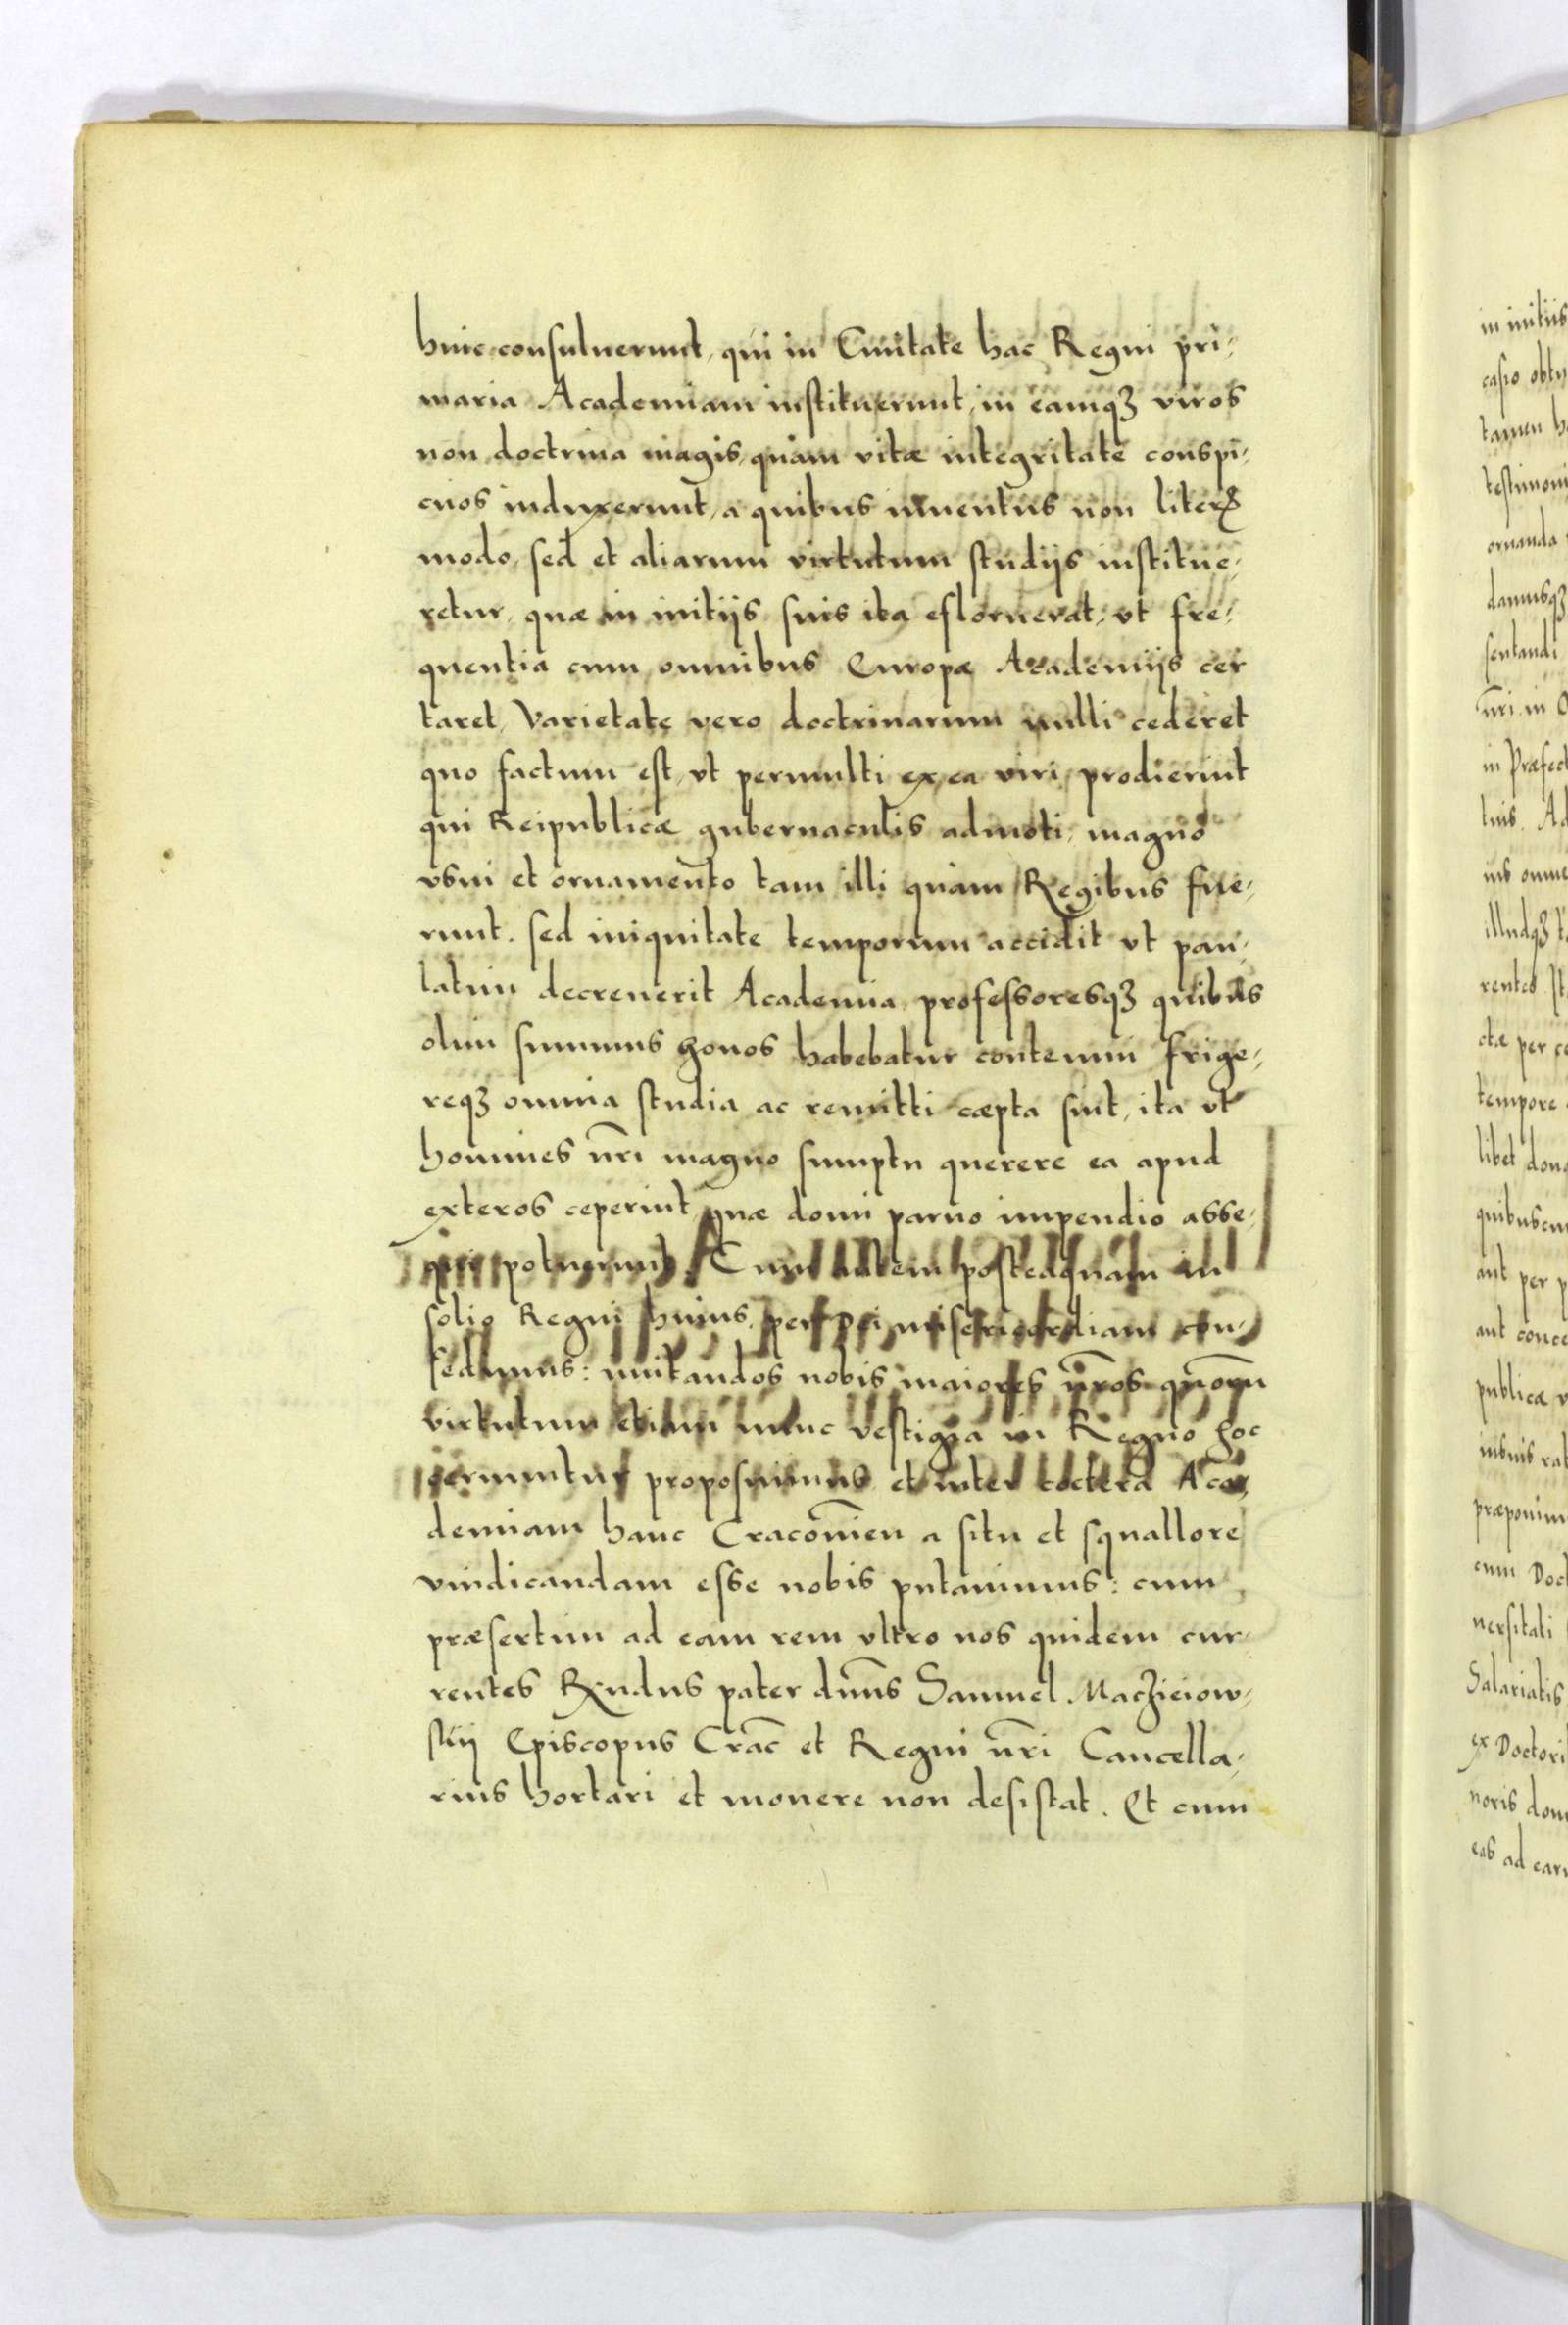 huic consuluerunt, qui in Ciuitate hac Regni pri-
maria Academiam instituerunt, in eamqȝ viros
non doctrina magis, quàm vitæ integritate conspi-
cuos induxerunt, a quibus iuuentus non literꝝ
modo, sed et aliarum virtutum studijs institue-
retur, quæ in initijs suis ita efloruerat, vt fre-
quentia cum omnibus Europæ Academijs cer
taret, Varietate vero doctrinarum nulli cederet
quo factum est, vt permulti ex ea viri prodierint
qui Reipublicæ gubernaculis admoti, magno
vsui et ornamento tam illi quàm Regibus fue-
runt. sed iniquitate temporum accidit vt pau-
latim decreuerit Academia, professoresqȝ quibus
olim summus honos habebatur contemni frige-
reqȝ omnia studia ac remitti cæpta sint, ita vt
homines nr̃i magno sumptu querere ea apud
exteros ceperint, quæ domi paruo impendio asse-
qui potuerunt. Cum autem posteaquam in
solio Regni huius, per Dei misericordiam con-
sedimus: imitandos nobis maiores nr̃os quorũ
virtutum etiam nunc vestigia in Regno hoc
cernuntur proposuimus et inter cœtera Aca-
demiam hanc Cracouien̄ a situ et squallore
vindicandam esse nobis putauimus: cum
præsertim ad eam rem vltro nos quidem cur-
rentes Rx̃ndus pater dñns Samuel Maczieiow-
skij Episcopus Crac̃ et Regni nr̃i Cancella-
rius hortari et monere non desistat. Et cum
in initiis
casio
tamen
ornanda
damusqȝ
sentandi
nr̃i in
in
tuis. Ad
illudqȝ
per
tempore
libet
aut per
aut
publicæ
cum Doc
Salariatis
ex Doctori
noris
eas ad